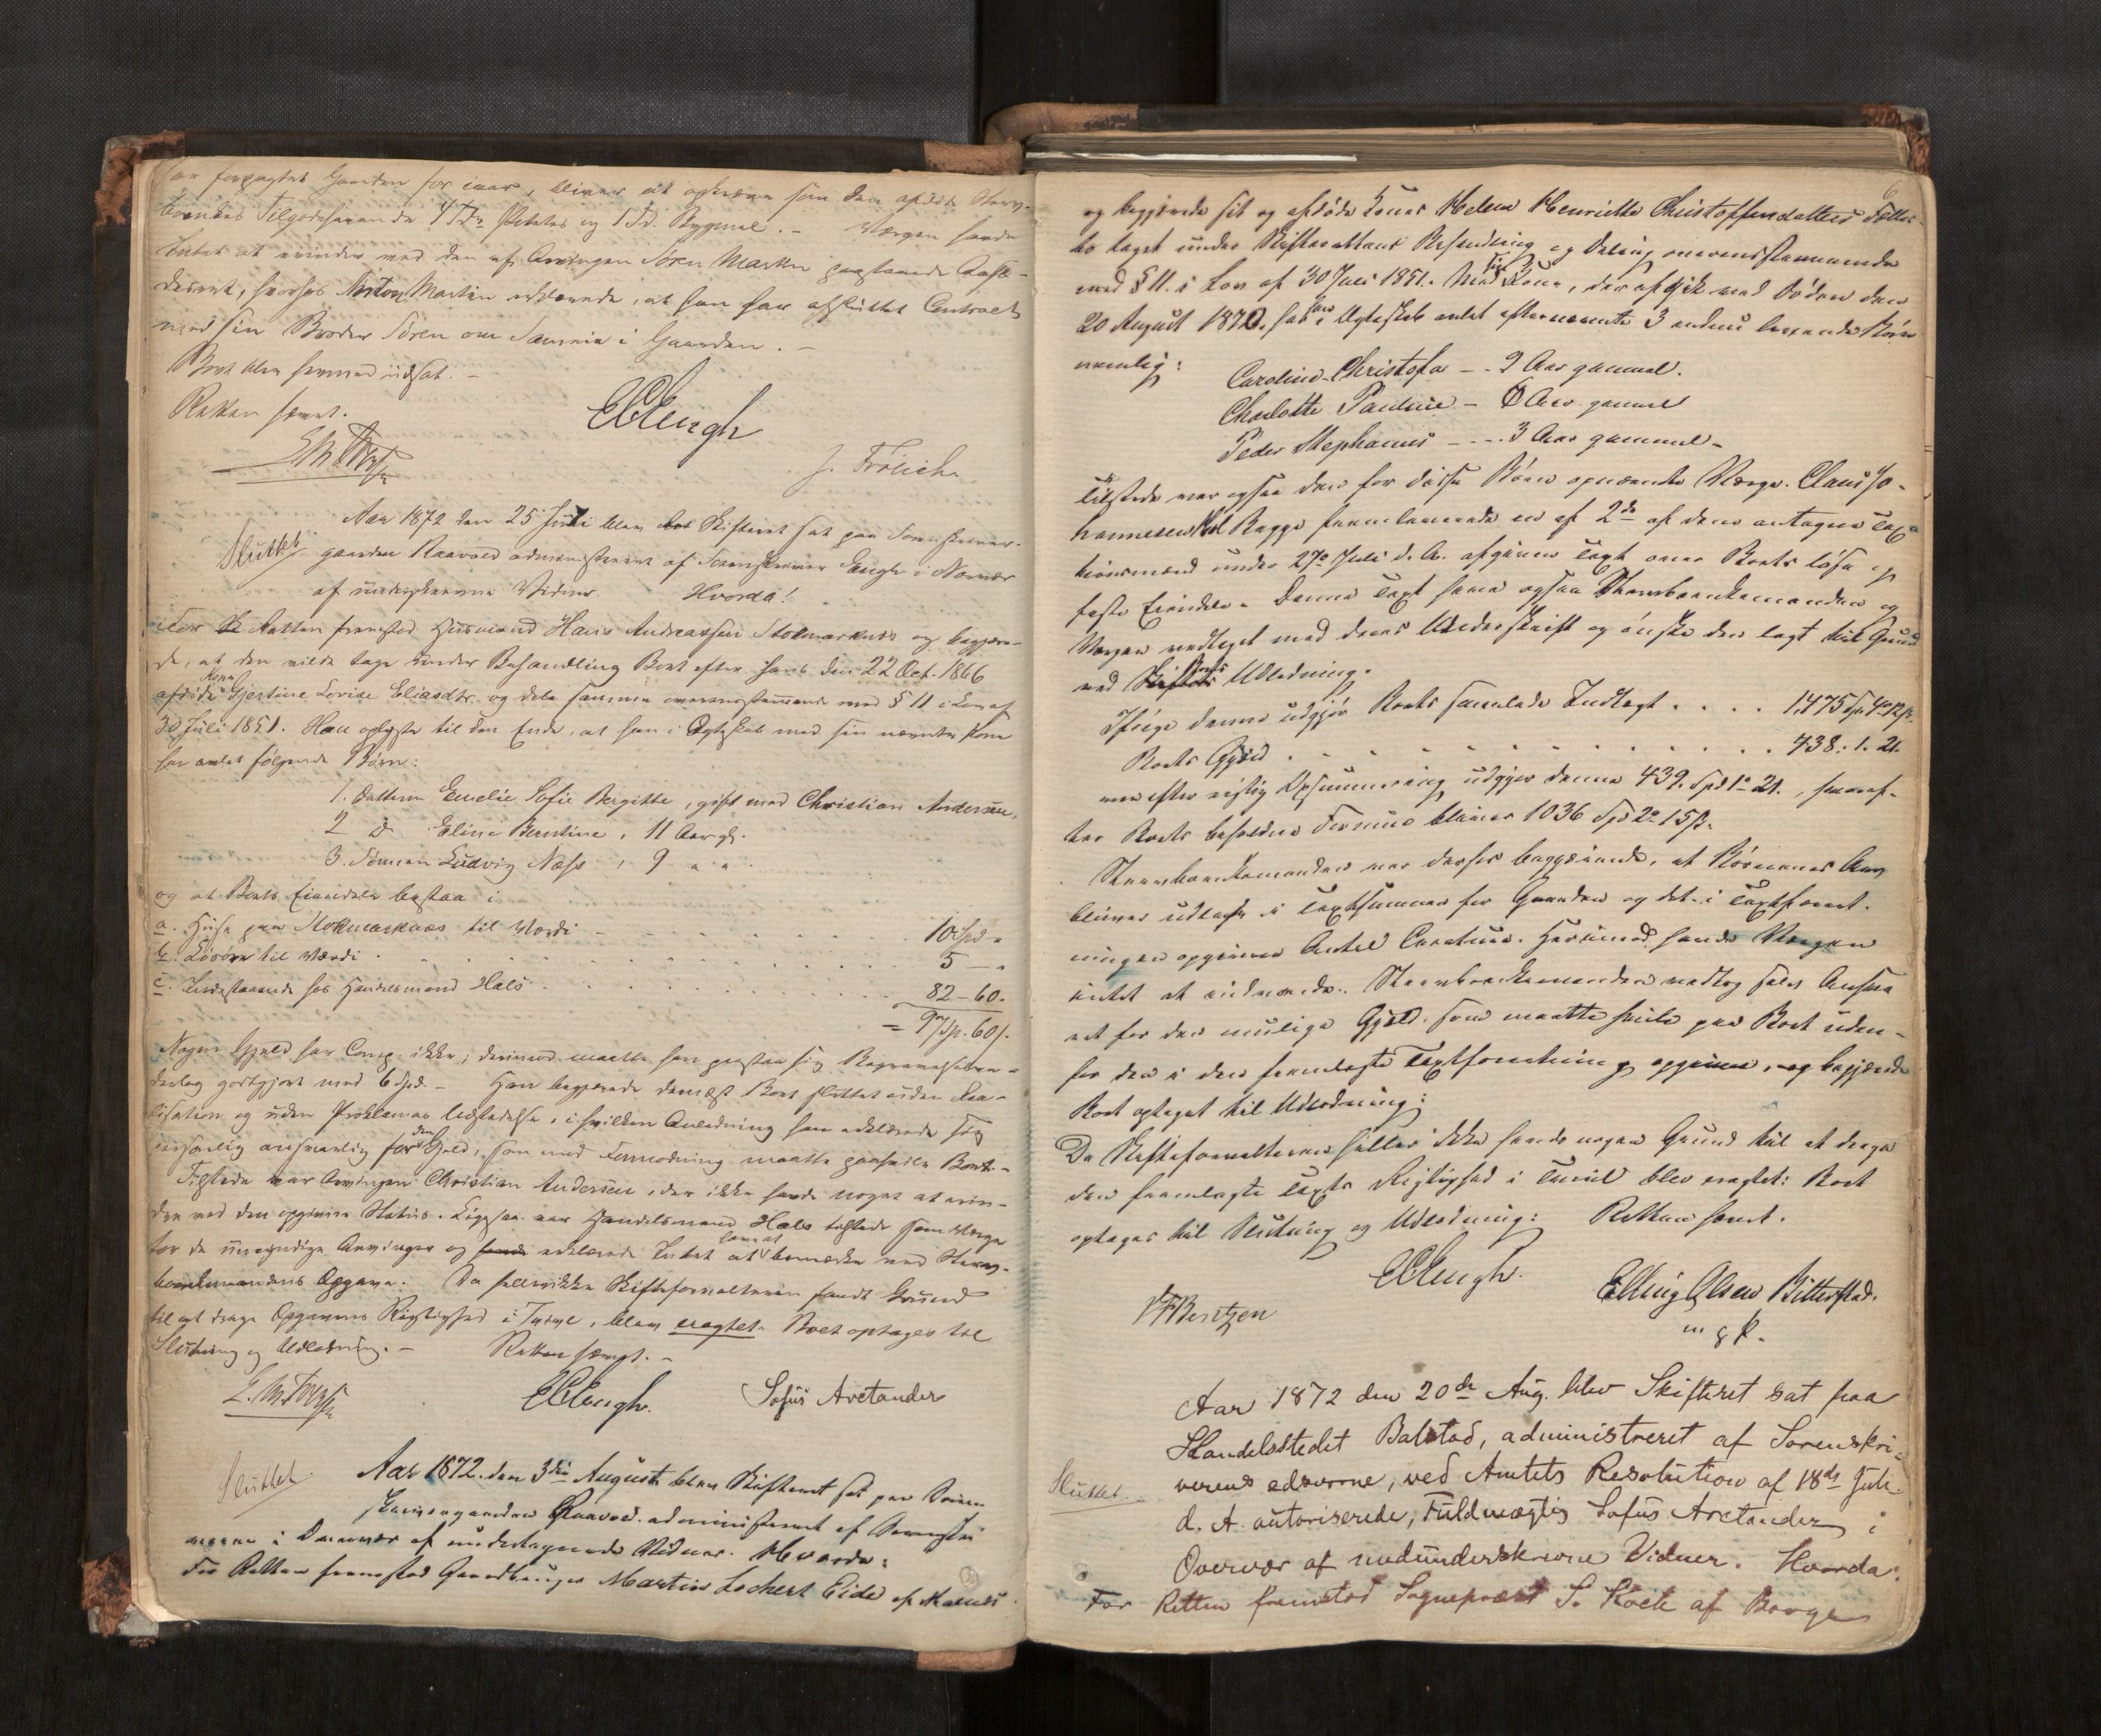 har forpagtet Gaarden for iaar, bliver at opkræve som den afdøde Sterv-
boendes Tilgodehavende 4 Tdr Poteter og 1 Td. Bygmel. – Værgen havde
Intet at erindre ved den af Arvingen Sören Martin paastaaede
med sin Broder Sören om i Gaarden. –
Boet blev hermed udsat. –
Retten hævet.
EEengh
J. Frölich
Aar 1872 den 25 Juli blev Skifteret sat paa Sorenskriver-
Sluttet
gaarden Raavold administreret af Sorenskriver Eengh i Nærvær
af underskrevne Vidner. Hvorda!
For Retten fremstod Husmand Hans Andreassen Stokmarknes og begjære-
de, at den vilde tage under Behandling Boet efter hans den 22 Oct. 1866
afdøde Kone Gjertine Lovise Eliasdtr. og dele samme overensstemmende med § 11 i Lov af
30 Juli 1851. Han oplyste til den Ende, at han i Ægteskab med sin nævnte Kone
har avlet følgende Börn:
1. Datteren Emelie Sofie Bergitte, gift med Christian Andersen,
2 do Eline Berntine, 11 Aar gl.
3. Sønnen Ludvig Næss, 9 " " .
og at Boets Eiendele bestaa i
a. Huse paa Stokmarknæs til Værdi 10 Spd "
b. Løsøre til Værdi 5 – "
c. Indestaaende hos Handelsmand Hals 82 – 60.
= 97 Sp. 60 s.
Nogen Gjeld har Comp. ikke; derimod maatte han paastaa sig Begravelses-
godtgjort med 6 Spd. – Han begjærede dernæst Boet sluttet uden Rea-
lisation og uden Proklamas Udstedelse, i hvilken Anledning han erklærede sig
personlig ansvarlig for den Gjeld, som mod Formodning maatte paahvile Boet. –
Tilstede var Arvingen Christian Andersen, der ikke havde noget at erin-
dre ved den opgivne Status. Ligesaa var Handelsmand Hals tilstede som Værge
for de umyndige Arvinger og erklærede Intet at bemærke ved Sterv-
boemandens Opgave. Da heller ikke Skifteforvalteren fandt Grund
til at drage Opgavens Rigtighed i Tvivl, blev eragtet. Boet optages til
Slutning og Udlodning. – Retten hævet. –
EEengh. Sofus Arctander
Sluttet
Aar 1872. den 3die August blev Skifteret sat paa Soren-
skrivergaarden Raavold administreret af Sorenskri-
veren i Overvær af undertegnede Vidner. Hvorda:
For Retten fremstod Gaardbruger Martin Lochert Eide af Malnes
6
og begjærede sit og afdøde Kones Helene Henriette Christoffersdatters Fælles-
bo taget under Skifterettens Behandling og Deling overensstemmende
med § 11. i Lov af 30 Juli 1851. Med sin Kone, der afgik ved Døden den
20 August 1870, har han i Ægteskab avlet efternævnte 3 endnu levende Børn
nemlig:
Caroline Christofa – - 9 Aar gammel.
Charlotte Pauline – 6 Aar gammel
Peder Stephanus – – - 3 Aar gammel –
Tilstede var ogsaa den for disse Börn opnævnte Værge. Claus Jo-
hannesen Bagge fremlæggende en af 2de af dem antagne Taxa-
tionsmænd under 27de Juli d. A. afgiven Taxt over Boets løse og
faste Eiendele. Denne Taxt have ogsaa Stervboenkemanden og
Værgen vedtaget med deres Underskrift og ønske den lagt til Grund
ved Boets Udlodning.
Ifølge denne udgjør Boets samlede Indtægt . . . . 1,475 Spd. 4 12 s.
Boets Gjæld . . . . . . . . . . . . 438: 1. 21.
men efter rigtig Opsummering udgjør denne 439 Spd 1 21., hvoref-
ter Boets beholdne Formue bliver 1036 Spd 2 15 s.
Stervboenkemanden var derhos begjærende, at Børnenes Arv
bliver udlagt i Taxtsummen for Gaarden og det i Taxtforret-
ningen opgivne Antal Creature. Herimod havde Værgen
intet at erindre. Stervboenkemanden vedtog heelt Ansva-
ret for den mulige Gjæld, som maatte hvile paa Boet uden-
for den i den fremlagte Taxtforretning opgivne, og begjærede
Boet optaget til Udlodning:
Da Skifteforvalteren heller ikke havde nogen Grund til at drage
den fremlagte Taxts Rigtighed i Tvivl blev eragtet: Boet
optages til Slutning og Udlodning: Retten hævet.
EEengh.
Elling Olsen Bitterstad.
m. p. P.
Berntzen
Aar 1872 den 20de Aug. blev Skifteret sat paa
Handelsstedet Balstad, administreret af Sorenskri-
Sluttet.
verens edsvorne, ved Amtets Resolution af 18de Juli
d. A. autoriserede, Fuldmægtig Sofus Arctander i
Overvær af nedunderskrevne Vidner. Hvorda:
For Retten fremstod Sogneprest S. Koch af Borge